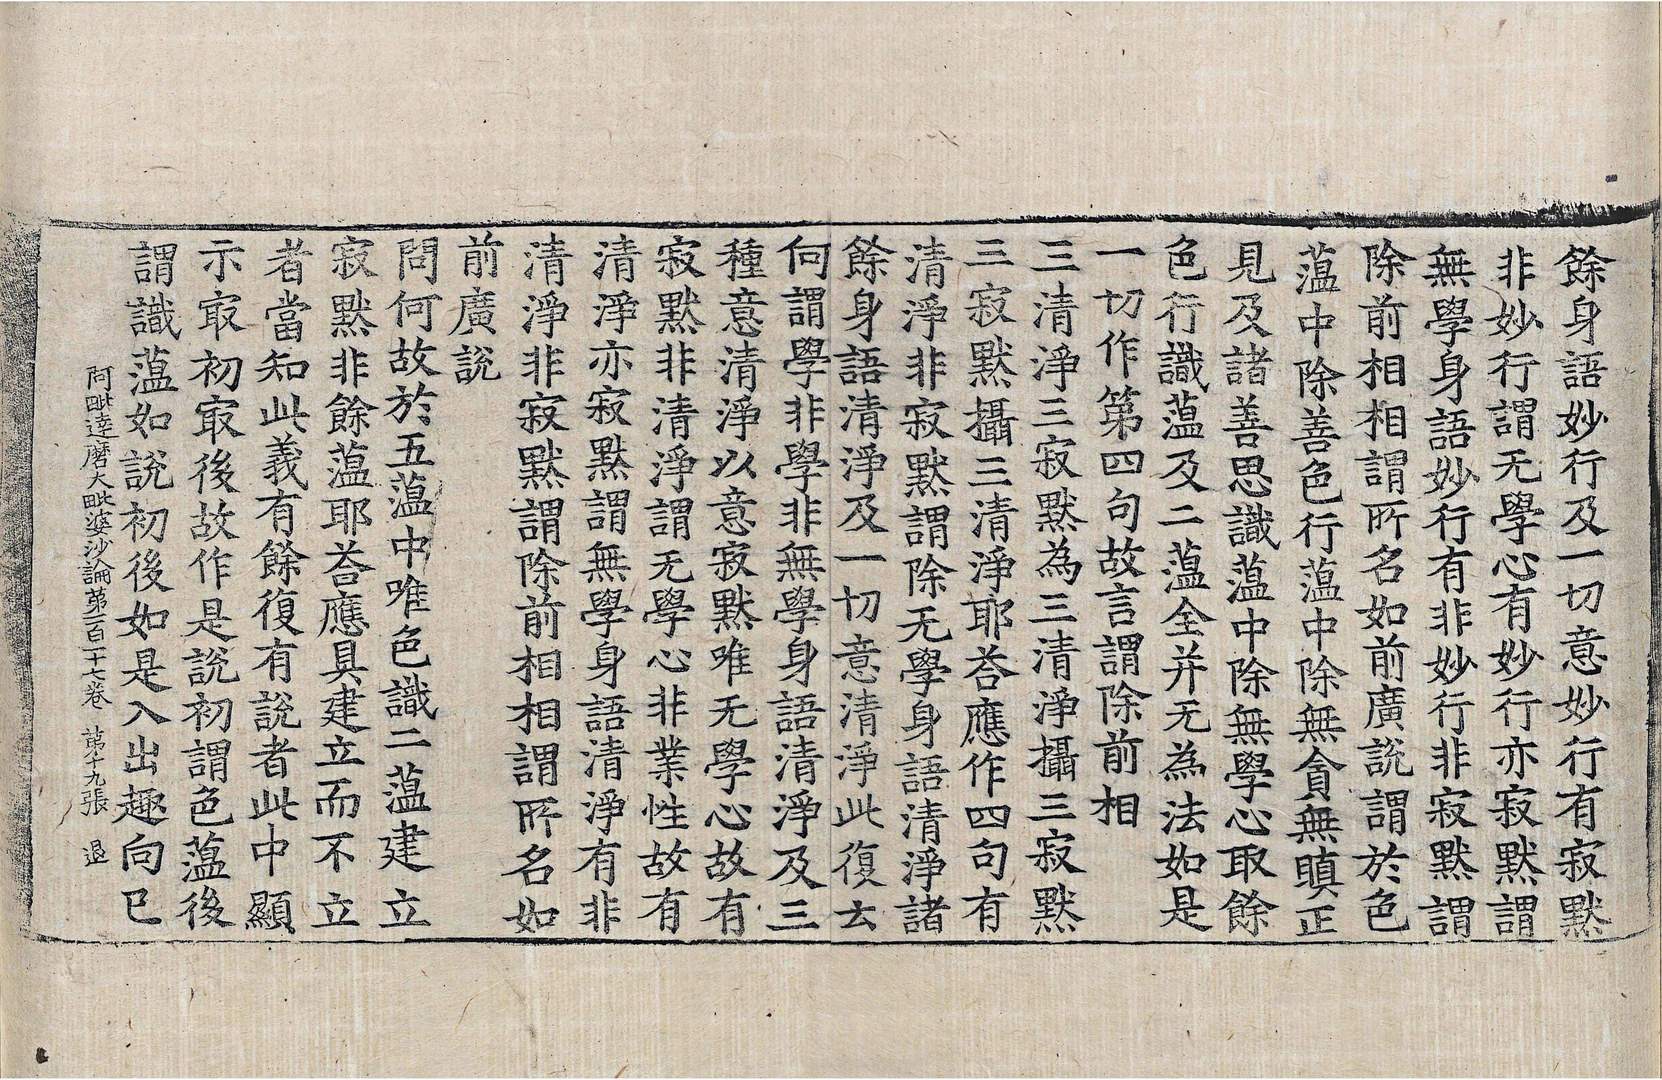 餘身語妙行及一切意妙行有寂默
非妙行謂无學心有妙行亦寂默謂
無學身語妙行有非妙行非寂默謂
除前相相謂所名如前廣說謂於色
薀中除善色行薀中除無貪無瞋正
見及諸善思識薀中除無學心取餘
色行識薀及二薀全并无為法如是
一切作第四句故言謂除前相
三清淨三寂默為三清淨攝三寂默
三寂默攝三清淨耶荅應作四句有
清淨非寂默謂除无學身語清淨諸
餘身語清淨及一切意清淨此復云
何謂學非學非無學身語清淨及三
種意清淨以意寂默唯无學心故有
寂默非清淨謂无學心非業性故有
清淨亦寂默謂無學身語清淨有非
清淨非寂默謂除前相相謂所名如
前廣說
問何故於五薀中唯色識二薀建立
寂默非餘薀耶荅應具建立而不立
者當知此義有餘復有說者此中顯
示㝡初㝡後故作是說初謂色薀後
謂識薀如說初後如是入出趣向已
阿毗達磨大毗婆沙論第一百一十七卷 第十九張 退